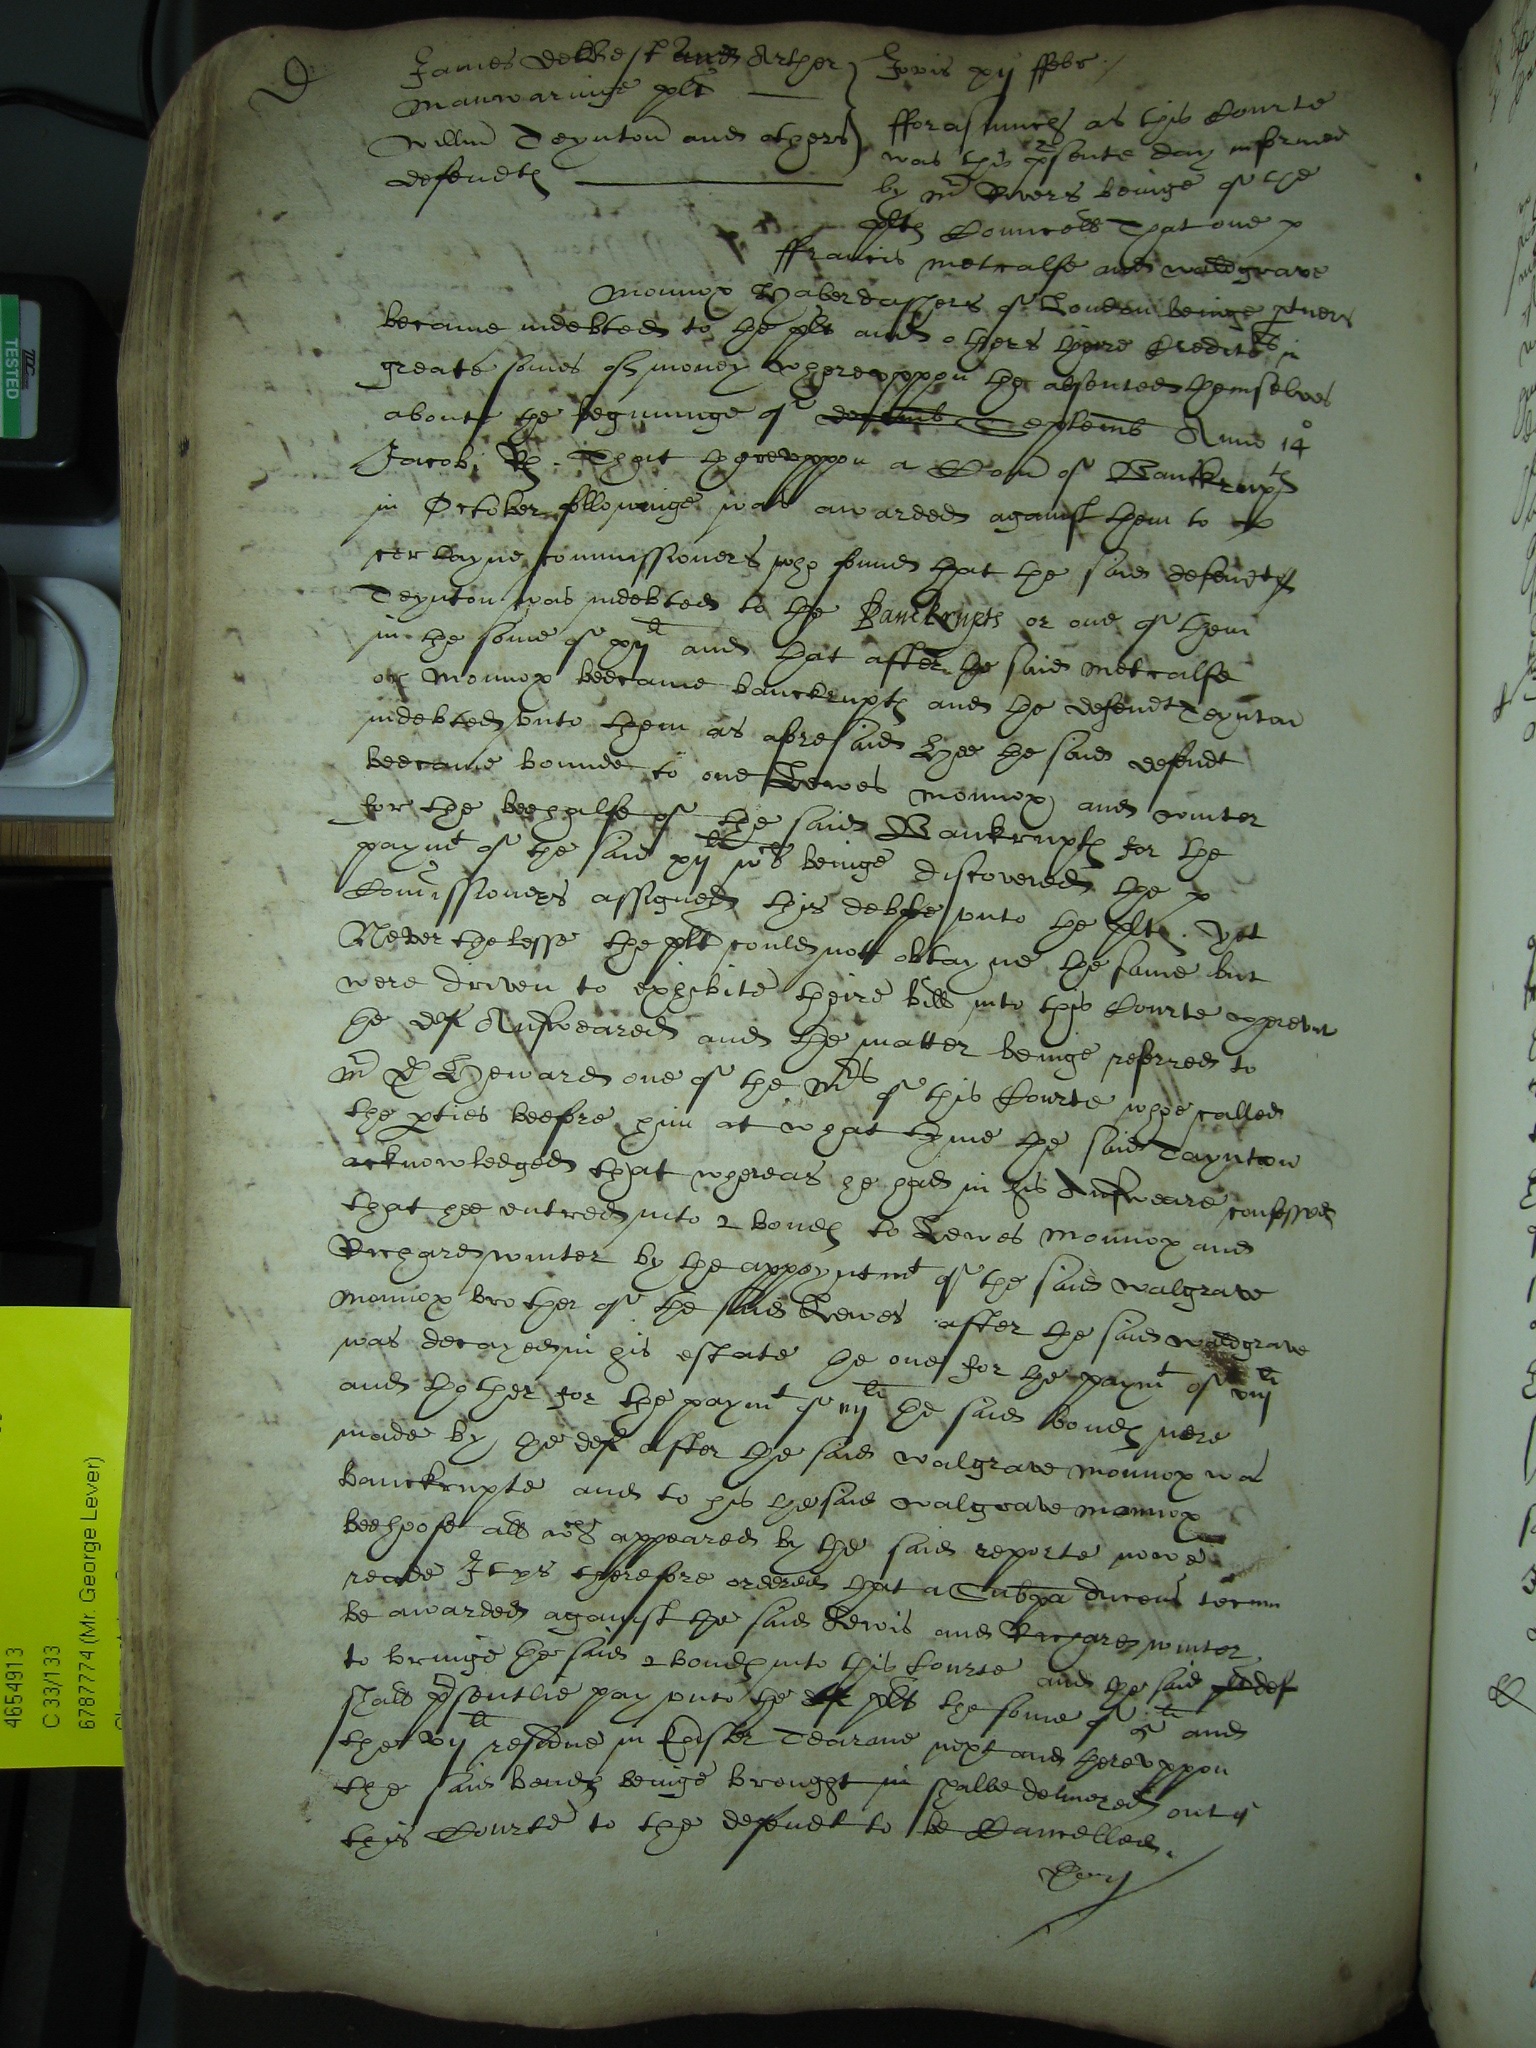 D
James Delbest and Arther
Manwaringe plt
Willm Teynton and others
defendts
Jovis xij ffebr
fforasmuch as this Courte
was this psente day informed
by mr Rivers beinge of the
plts Councell That one
ffrancis Metcalfe and Waldgrave
Monnox Haberdashers of London beinge ptners
became indebted to the plts and others theire Creditors in
greate somes of money Wherevppon the absented themselves
aboute the beginninge of Septemb Anno 14o
Jacobi R. That therevppon a Com of Banckrupts
in October followinge was awarded against them to
certayne commissioners who found that the said defendt
Teynton was indebted to the Banckrupts or one of them
in the some of xijli and that after the said Metcalfe
or Monnox beecame banckrupts and the defendt Teynton
indebted vnto them as aforesaid Hee the said defendt
beecame bounde to one Lewes Monnox and winter
for the beehalfe of the said Bankrupts for the
paymt of the said xijli wch beinge discovered the
Comissioners assigned this debte vnto the plts. Yet
Neverthelesse the plts could not obtayne the same but
were driven to exhibite theire bill into this Courte wherevnto
the def Answeared and the matter beinge referred to
mr D Heyward one of the Mrs of this Courte whoe called
the pties beefore him at what tyme the said Taynton
acknowledged that whereas he had in his Answeare confessed
that hee entred into 2 bonds to Lewes Monnox and
Richard winter by the appoyntmt of the said walgrave
Monnox brother of the said Lewes after the said Waldgrave
was decayed in his estate the one for the paymt of viijli
and thother for the paymt of iiijli the said bonds were
made by the def after the said Walgrave Monnox was
banckrupte and to his the said Walgrave Monnox
beehoofe all wch appeared by the said reporte nowe
reade It ys therefore ordered that a Subpa ducens tecum
be awarded against the said Lewis and Richard winter
to bringe the said 2 bonds into this Courte and the said def
shall psentlie pay vnto the plts the some of vli and
the vijli residue in Easter Tearme next and therevppon
the said bonds beinge brought in shalbe delivered out of
this Courte to the defendt to be Cancelled.
4654913
C 33/133
6787774 (Mr. George Lever)
TESTED